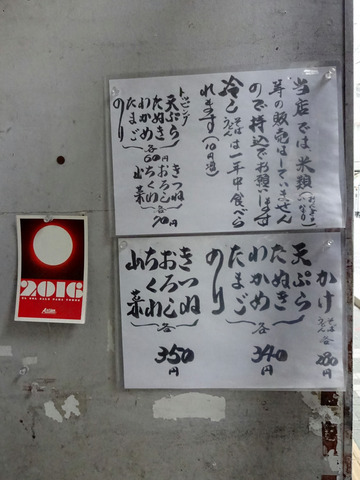 当店では、米類(おにぎり いなり)
等の販売はしていません
ので持込でお願いします
冷し そば うどん は一年中食べら
れます (10円増)
トッピング
天ぷら
たぬき
わかめ
たまご
のり
各
60円
きつね
おろし
ちくわ
山菜
各
70円
かけ そば うどん 各 280円
天ぷら
たぬき
わかめ
たまご
のり
各
340円
きつね
おろし
ちくわ
山菜
各
350円
2016